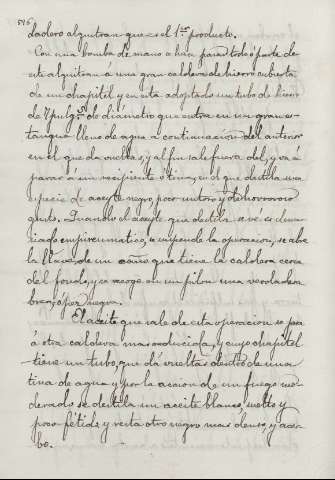 576
dadero alquitran que es el 1er producto.
Con una bomba de mano se hace pasar todo ó parte de
este alquitran á una gran caldera de hierro cubierta
de un chapitel y en esta adoptado un tubo de hierro
de 7 pulgs de diámetro que entra en un gran es-
tanque lleno de agua á continuacion del anterior
en el que da vueltas, y al fin sale fuera del, y va á
parar á un recipiente ó tina, en el que destila una
especie de aceyte negro, poco untoso y de horroroso
gusto. Quando el aceyte que destila se vé es dema-
siado empireumatico, se suspende la operacion, se abre
la llave de un caño que tiene la caldera cerca
del fondo, y se recoge en un pilon una verdadera
brea, ó pez negra.
El aceite que sale de esta operacion se pasa
á otra caldera mas reducida, y cuyo chapitel
tiene un tubo, que dá vueltas dentro de una
tina de agua y por la accion de un fuego mo-
derado se destila un aceite blanco, suelto y
poco fétido y resta otro negro mas denso, y acer-
bo.